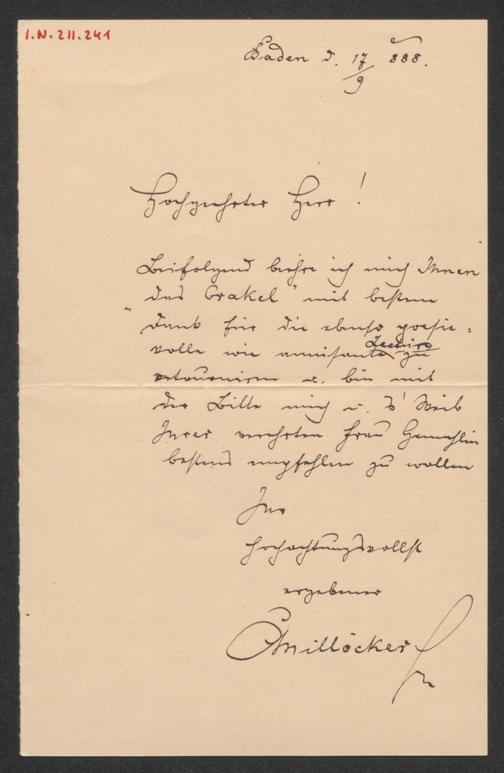 I.N. 211.241
Baden d. 17/9 888.
Hochgeehrter Herr!
Beifolgend beehre ich mich Ihnen
"das Orakel" mit bestem
Dank für die ebenso poesie=
volle wie amüsante Lectüre zu
retournieren u. bin mit
der Bitte mich u. 's Weib
Ihrer verehrten Frau Gemahlin
bestens empfehlen zu wollen
Ihr
hochachtungsvollst
ergebener
CMillöcker